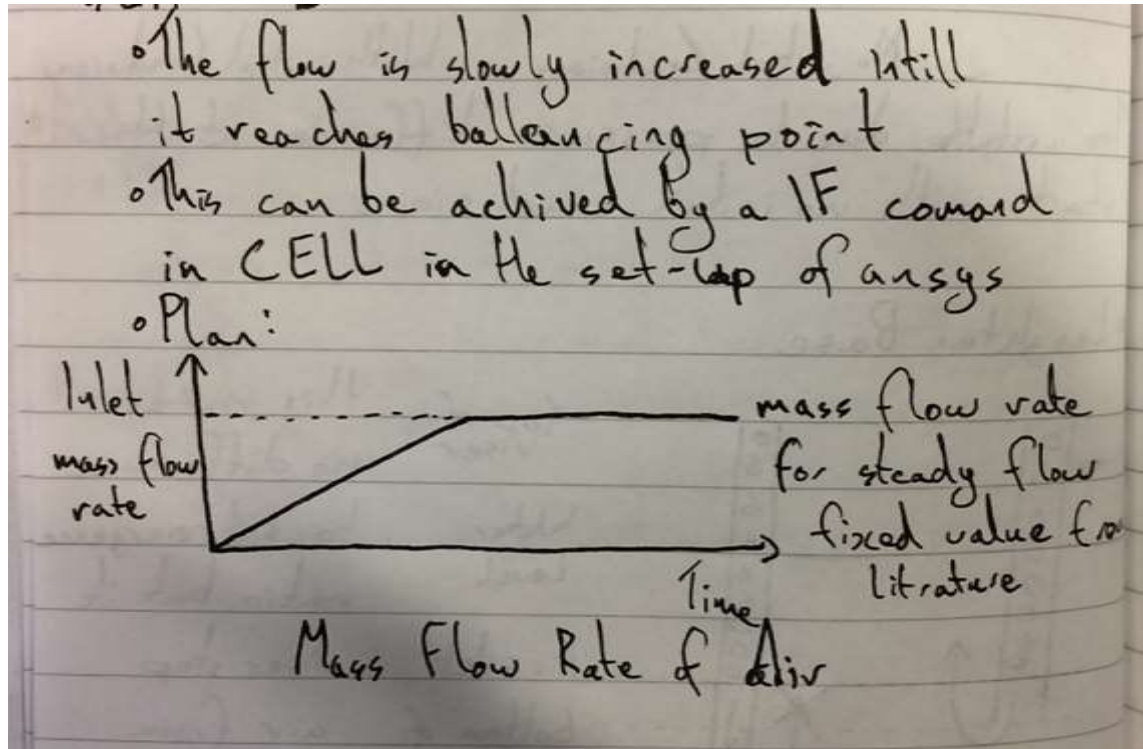 •The flow is slowly increased intill
it reaches ballancing point
•This can be achived by a IF comand
in CELL in the set-up of ansys
•Plan:
Inlet
mass flow
rate
mass flow rate
for steady flow
fixed value fro
litrature
Time
Mass Flow Rate of Air